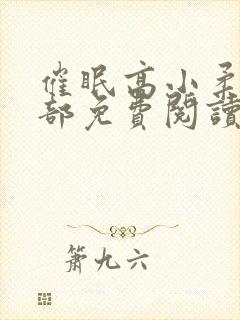 催眠高小柔
部免費閱讀
箫九六